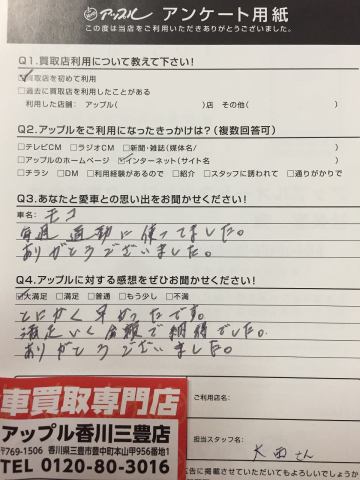 アップル アンケート用紙
この度は当店をご利用いただきありがとうございました。
Q1.買取店利用について教えて下さい!
☑買取店を初めて利用
□過去に買取店を利用したことがある
利用した店舗: アップル( )店 その他( )
Q2.アップルをご利用になったきっかけは?(複数回答可)
□テレビCM □ラジオCM □新聞・雑誌(媒体名/ )
□アップルのホームページ ☑インターネット(サイト名
□チラシ □DM □利用経験があるので □紹介 □スタッフに誘われて □通りがかりで
Q3.あなたと愛車との思い出をお聞かせください!
車名: モコ
毎週通勤に使ってました。
ありがとうございました。
Q4.アップルに対する感想をぜひお聞かせください!
☑大満足 □満足 □普通 □もう少し □不満
とにかく早かったです。
満足いく金額で納得でした。
ありがとうございました。
車買取専門店
アップル香川三豊店
〒769-1506 香川県三豊市豊中町本山甲956番地1
TEL 0120-80-3016
ご利用店名:
担当スタッフ名:
さん
広告に掲載させていただいてもよろしいでしょうか